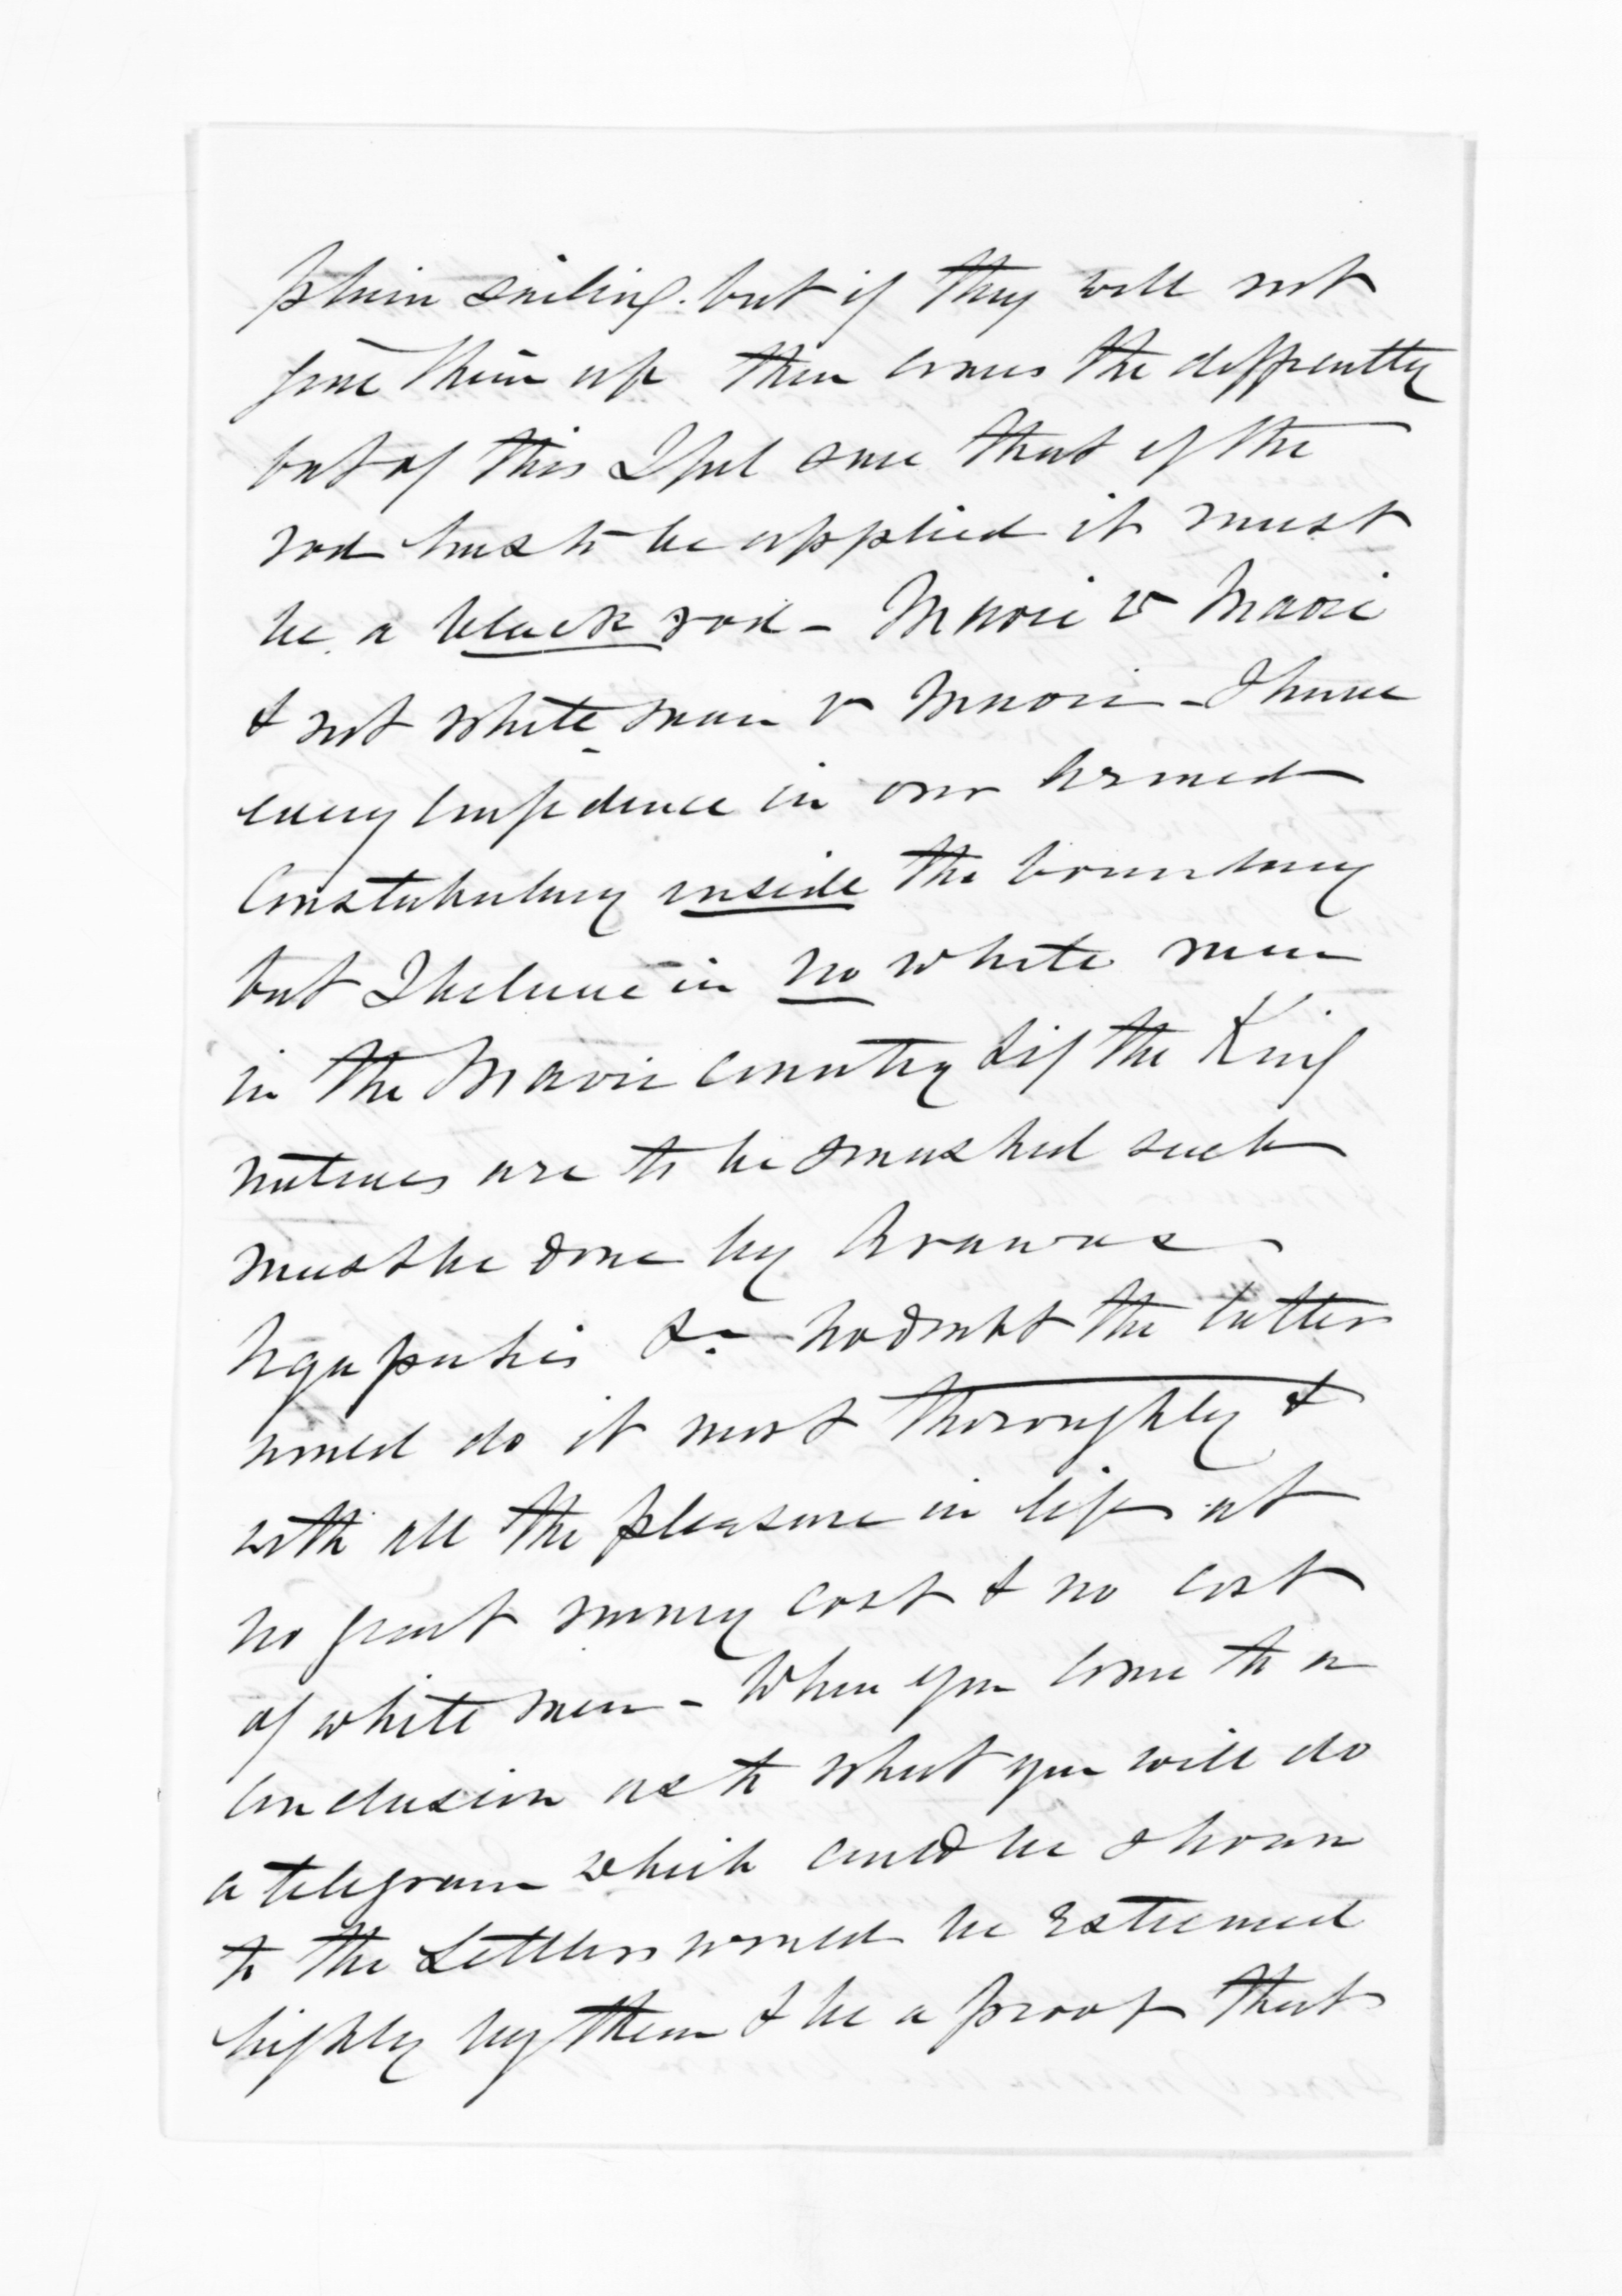 plain sailing. but if they will not
give them up then comes the difficulty
but of this I feel sure that if the
rod has to be applied it must
be a black rod - Maori v Maori
& not white man v Maori - I have
every confidence in our Armed
Constabulary inside the boundary
but I believe in no white men
in the Maori country & if the King
natives are to be smashed such
must be done by Arawas
Ngapuhis &c - no doubt the latter
would do it most thoroughly &
with all the pleasure in life at
no great money cost & no cost
of white men - When you come to a
conclusion as to what you will do
a telegram which could be shown
to the Settlers would be esteemed
highly by them & be a proof that